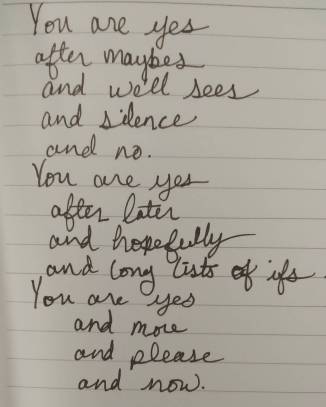 You are yes
after maybes
and we'll sees
and silence
and no.
You are yes
after later
and hopefully
and long lists of ifs.
You are yes
and more
and please
and now.